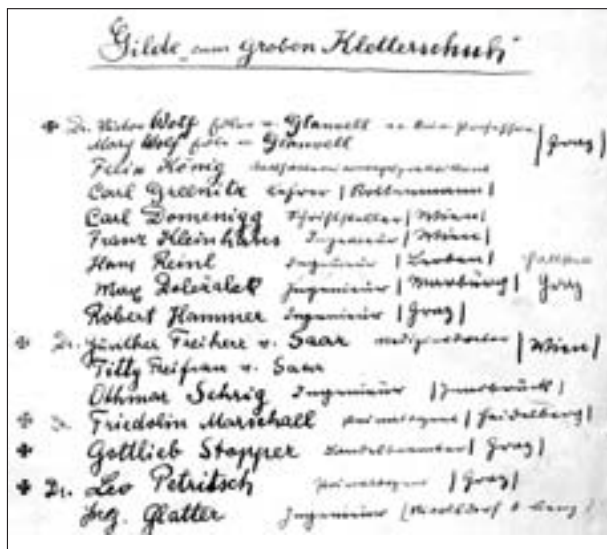 Gilde „zum groben Kletterschuh“
Dr. Victor Wolf Edler v. Glanvell
Mary Wolf Edle v. Glanvell | Graz |
Felix König
Carl Greenitz Lehrer | Rottenmann |
Carl Domenigg Schriftsteller | Wien |
Franz Kleinhans Ingenieur | Wien |
Hans Reinl Ingenieur | Leoben |
Max Doležalek Ingenieur | Marburg | Graz
Robert Hammer Ingenieur | Graz |
Dr. Günther Freiherr v. Saar | Wien |
Titty Freifrau v. Saar
Othmar Sehrig Ingenieur | Innsbruck |
Dr. Friedolin Marschall | Heidelberg |
Gottlieb Stopper | Graz |
Dr. Leo Petritsch | Graz |
Ing. Glatter Ingenieur